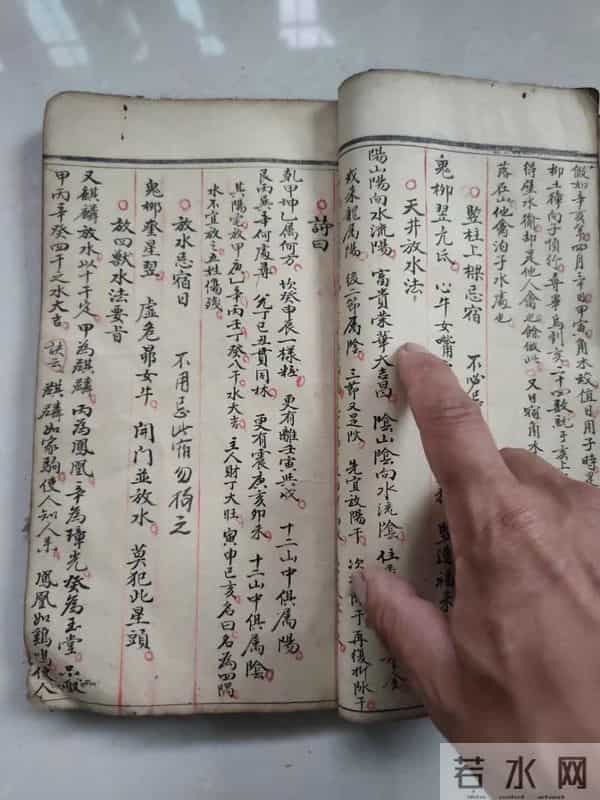 假如辛亥年四月三十日甲寅角木故值日用子時是
柳土種向子慎行
得壁水衛却是他人禽也餘做此 又曰宿角水
落在山他禽泊子水處也
竪柱上樑忌宿 不必忌
鬼柳翌亢氐 心牛女嘴
天井放水法
陽山陽向水流陽 富貴榮華大吉昌 陰山陰向水流陰
或來龍屬陽 後二節屬陰 三節又是 先宜放陽干 次 干再後
詩曰
乾甲坤乙屬何方 坎癸申辰一樣粧 更有離壬寅與戌 十二山中俱屬陽
艮丙無辛何處尋 兌丁巳丑貫同林 更有震庚亥卯未 十二山中俱屬陰
其陽宅放甲庚乙辛丙壬丁癸八干水大吉 主人財丁大旺 寅申巳亥名曰名為四隅
水不宜放之五姓傷殘
放水忌宿日 不用忌此宿勿犄之
鬼柳奎星翌 虛危昴女牛 開門並放水 莫犯此星頭
放四獸水法要旨
又麒麟放水以十干定 甲為麒麟 丙為鳳凰 辛為璋光 癸為玉堂
甲丙辛癸四干之水大吉 訣云 麒麟如家駒使人知人來 鳳凰如鷄鳴使人
若水网